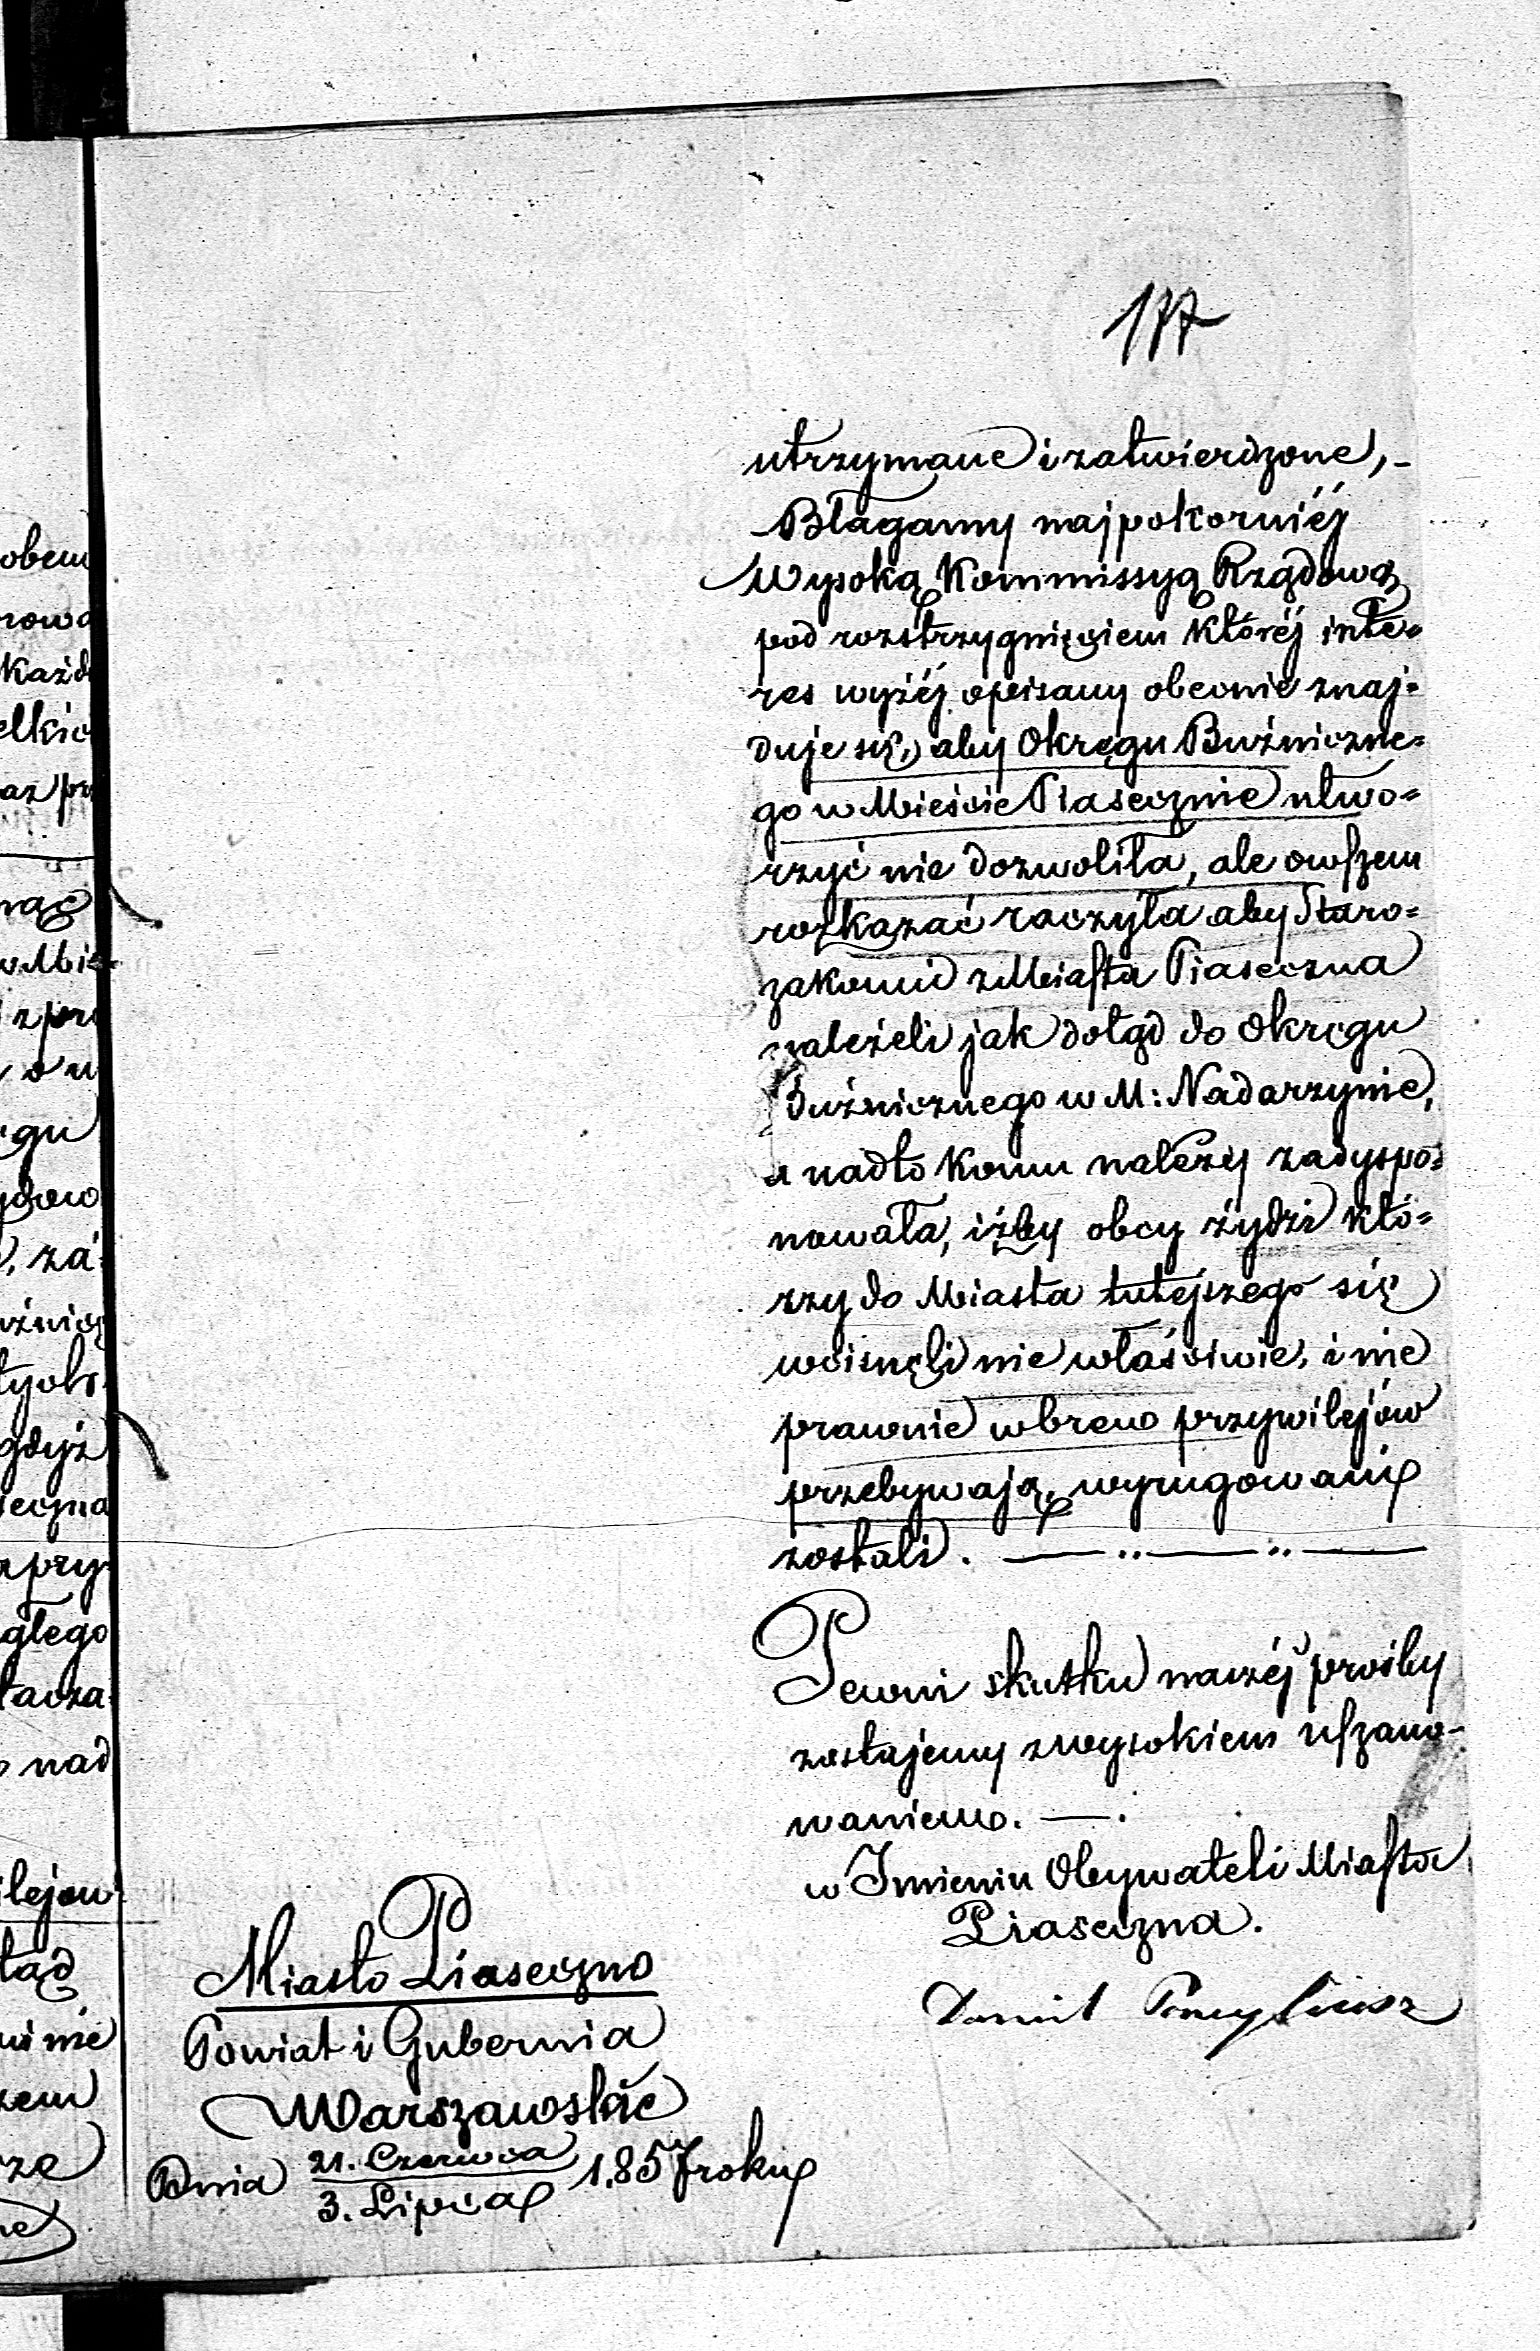 177
utrzymane i zatwierdzone, -
Błagamy najpokorniéj
Wysoką Kommissyą Rządową
pod rozstrzygnięciem któréj inte=
res wyżéj opisany obecnie znaj=
duje się, aby Okręgu Buźniczne=
go w Mieście Piasecznie utwo=
rzyć nie dozwoliła, ale owszem
rozkazać raczyła aby Staro=
zakonni z Miasta Piaseczna
należeli jak dotąd do Okręgu
Buźnicznego w M: Nadarzynie,
a nadto komu należy zadyspo=
nowała, iżby obcy żydzi któ=
rzy do Miasta tutejszego się
wcisnęli nie właściwie, i nie
prawnie wbrew przywilejów
przebywają, wyrugowani
zostali. — .. — .. —
Pewni skutku naszéj prośby
zostajemy z wysokiem uszano-
waniem. — .
w Imieniu Obywateli Miasta
Piaseczna.
Miasto Piaseczno
Powiat i Gubernia
Warszawskie
Dnia 21. Czerwca / 3. Lipca 1857 roku
obem
każd
elkic
az pr
nąc
w Mie=
z pra
o w
ęgu
, za=
uźnicy
tych
gdyż
ecyna
głego
tacza
nad
ilejow
tąd
nie
zem
ze